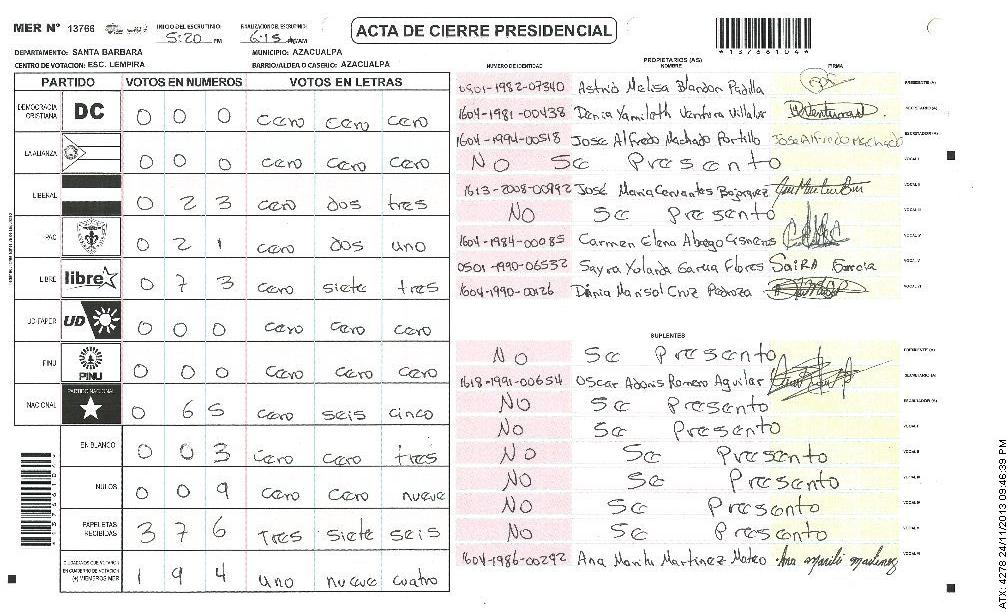 MER Nº 13766 INICIO DEL ESCRUTINIO: 5:20 PM FINALIZACION DEL ESCRUTINIO: 6:15 AM
ACTA DE CIERRE PRESIDENCIAL
*13766104*
DEPARTAMENTO: SANTA BARBARA MUNICIPIO: AZACUALPA
CENTRO DE VOTACION: ESC. LEMPIRA BARRIO/ALDEA O CASERIO: AZACUALPA
PARTIDO VOTOS EN NUMEROS VOTOS EN LETRAS
DEMOCRACIA CRISTIANA DC 0 0 0 cero cero cero
LA ALIANZA 0 0 0 cero cero cero
LIBERAL 0 2 3 cero dos tres
PAC 0 2 1 cero dos uno
LIBRE libre 0 7 3 cero siete tres
UD-FAPER UD 0 0 0 cero cero cero
PINU PINU 0 0 0 cero cero cero
NACIONAL PARTIDO NACIONAL 0 6 5 cero seis cinco
EN BLANCO 0 0 3 cero cero tres
NULOS 0 0 9 cero cero nueve
PAPELETAS RECIBIDAS 3 7 6 Tres siete seis
CIUDADANOS QUE VOTARON EN CUADERNO DE VOTACION (+) MIEMBROS MER 1 9 4 uno nueve cuatro
PROPIETARIOS (AS)
NUMERO DE IDENTIDAD NOMBRE FIRMA
0501-1982-07340 Astrid Melisa Blandon Padilla PRESIDENTE (A)
1604-1981-00438 Denia Yamileth Ventura Villalo SECRETARIO (A)
1604-1994-00518 Jose Alfredo Machado Portillo Jose Alfredo Machado ESCRUTADOR (A)
No Se Presento VOCAL I
1613-2008-00992 José Maria Cervantes Bojorquez VOCAL II
No Se Presento VOCAL III
1604-1984-00085 Carmen Elena Abrego Cisneros VOCAL IV
0501-1990-06532 Sayra Yolanda Garcia Flores SaiRA Garcia VOCAL V
1604-1990-00126 Dinia Marisol Cruz Pedroza VOCAL VI
SUPLENTES
No Se Presento PRESIDENTE (A)
1618-1991-00654 Oscar Adonis Romero Aguilar SECRETARIO (A)
No Se Presento ESCRUTADOR (A)
No Se Presento VOCAL I
No Se Presento VOCAL II
No Se Presento VOCAL III
No Se Presento VOCAL IV
No Se Presento VOCAL V
1604-1986-00292 Ana Marili Martinez Mateo Ana marili martinez VOCAL VI
ATX: 4278 24/11/2013 09:46:39 PM